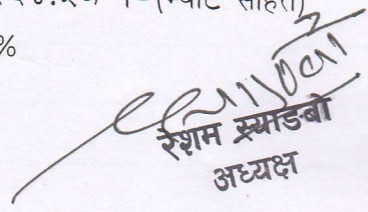 (भ्याट सहित)
%
रेशम स्याङबो
अध्यक्ष